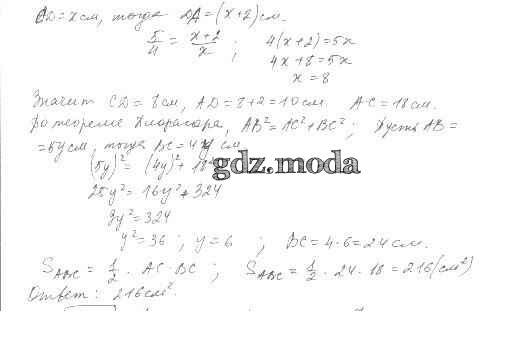 CD = x см, тогда DA = (x+2) см.
5/4 = (x+2)/x ; 4(x+2) = 5x
4x + 8 = 5x
x = 8
Значит CD = 8 см, AD = 8+2 = 10 см. AC = 18 см.
По теореме Пифагора, AB² = AC² + BC² ; Пусть AB =
= 5y см, тогда BC = 4y см
(5y)² = (4y)² + 18²
gdz.moda
25y² = 16y² + 324
9y² = 324
y² = 36 ; y = 6 ; BC = 4·6 = 24 см.
S_ABC = 1/2 · AC · BC ; S_ABC = 1/2 · 24 · 18 = 216 (см²)
Ответ: 216 см².